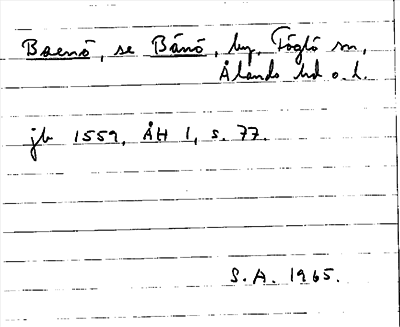 Baenö, se Bänö, by, Föglö sn,
Ålands hd o. l.
jb 1559, ÅH 1, s. 77.
S. A. 1965.